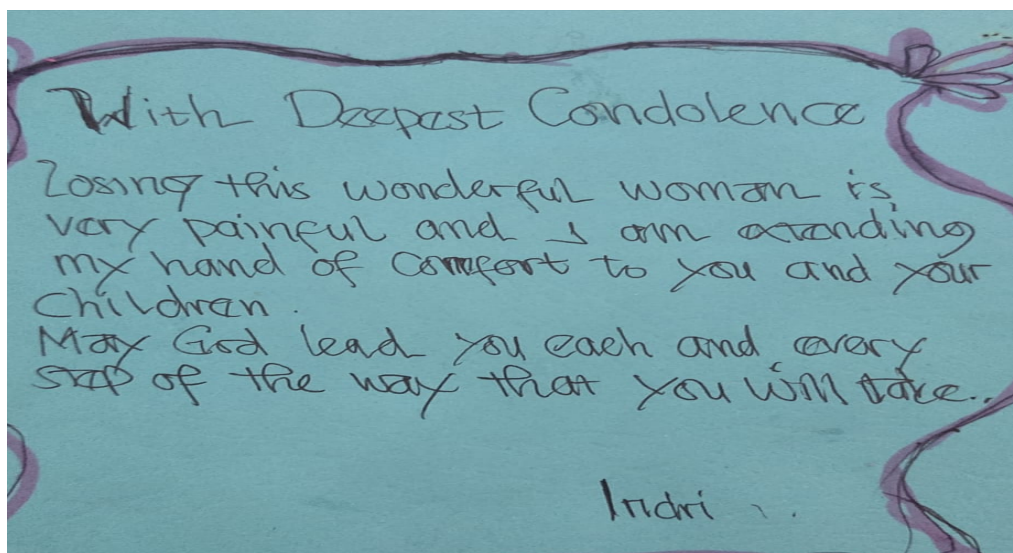 With Deepest Condolence
Losing this wonderful woman is
very painful and I am extending
my hand of comfort to you and your
children.
May God lead you each and every
step of the way that you will take..
Indri ..